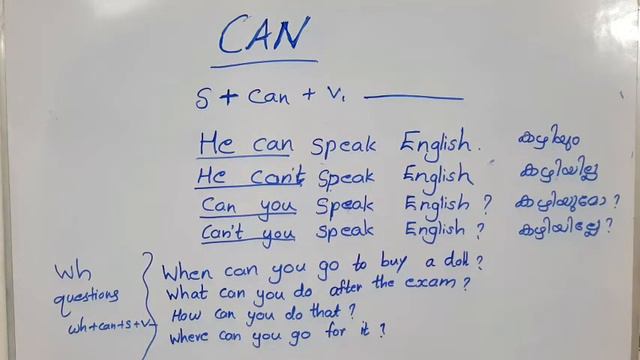 CAN
S + can + V₁
He can speak English. കഴിയും
He can't speak English കഴിയില്ല
Can you speak English ? കഴിയുമോ ?
Can't you speak English ? കഴിയില്ലേ ?
Wh questions wh+can+s+v
When can you go to buy a doll ?
What can you do after the exam ?
How can you do that ?
Where can you go for it ?